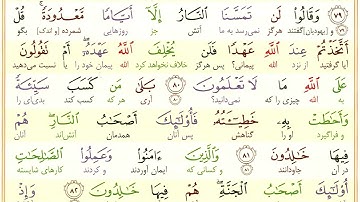 وَقَالُوا۟ لَن تَمَسَّنَا ٱلنَّارُ إِلَّآ أَيَّامًا مَّعْدُودَةً ۚ قُلْ
و (یهودیان) گفتند هرگز نمی‌رسد به ما آتش جز روزهایی شمرده (و اندک) بگو
أَتَّخَذْتُمْ عِندَ ٱللَّهِ عَهْدًا فَلَن يُخْلِفَ ٱللَّهُ عَهْدَهُۥٓ ۖ أَمْ تَقُولُونَ
آیا گرفتید از نزد الله پیمانی؟ پس هرگز خلاف نخواهد کرد الله پیمان خود را یا می‌گویید
عَلَى ٱللَّهِ مَا لَا تَعْلَمُونَ ٨٠ بَلَىٰ مَن كَسَبَ سَيِّئَةً
به الله چیزی را که نمی‌دانید؟ آری هر که کسب کند بدی‌ای را
وَأَحَٰطَتْ بِهِۦ خَطِيٓـَٔتُهُۥ فَأُو۟لَٰٓئِكَ أَصْحَٰبُ ٱلنَّارِ ۖ هُمْ
و فراگیرد او را گناهش پس آنان همدمان آتش‌اند آنان
فِيهَا خَٰلِدُونَ ٨١ وَٱلَّذِينَ ءَامَنُوا۟ وَعَمِلُوا۟ ٱلصَّٰلِحَٰتِ
در آن جاودانند و کسانی که ایمان آوردند و کردند کارهای شایسته
أُو۟لَٰٓئِكَ أَصْحَٰبُ ٱلْجَنَّةِ ۖ هُمْ فِيهَا خَٰلِدُونَ ٨٢ وَإِذْ